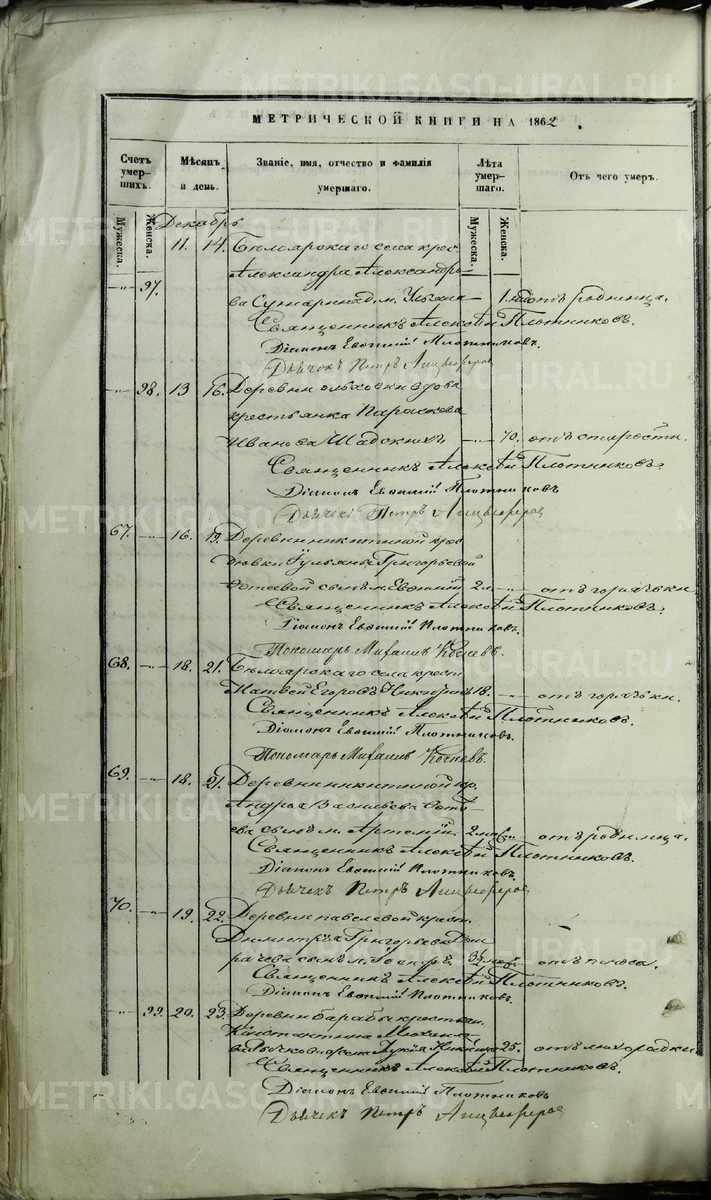 МЕТРИЧЕСКОЙ КНИГИ НА 1862.
Счетъ умершихъ.
Мужеска.
Женска.
Мѣсяцъ и день.
Званіе, имя, отчество и фамилія умершаго.
Лѣта умершаго.
Мужеска.
Женска.
Отъ чего умеръ.
Декабрь
11. 14. Бѣлоярскаго села крес.
97. Александра Александро-
ва дм. Ульяна 1. отъ родимца.
Священникъ Алексѣй Плотниковъ.
Діаконъ Евѳимій Плотниковъ.
Дьячекъ Петръ
98. 13 16. Деревни Ольховки вдова
крестьянка Параскева
Иванова Шадскихъ 70. отъ старости.
Священникъ Алексѣй Плотниковъ.
Діаконъ Евѳимій Плотниковъ
Дьячекъ Петръ
67. 16. 19. Деревни Никитиной крес.
дѣвки Іульяны Григорьевой
сынъ н. Евѳимій 2 отъ горячьки
Священникъ Алексѣй Плотниковъ.
Діаконъ Евѳимій Плотниковъ.
Пономарь Михаилъ Кочневъ.
68. 18. 21. Бѣлоярскаго села крест.
Матвей Егоровъ 18. отъ горячьки.
Священникъ Алексѣй Плотниковъ.
Діаконъ Евѳимій Плотниковъ.
Пономарь Михаилъ Кочневъ.
69. 18. 21. Деревни Никитиной кр.
Андрея Васильева
ева сынъ м. Артемій. 2 отъ родимца.
Священникъ Алексѣй Плотниковъ.
Діаконъ Евѳимій Плотниковъ.
Дьячекъ Петръ
70. 19. 22. Деревни Павелевой крест.
Димитрія Григорьева
сынъ м. 3½ отъ поноса.
Священникъ Алексѣй Плотниковъ.
Діаконъ Евѳимій Плотниковъ.
99. 20. 23. Деревни Барабы крестьян.
Константина Михаило-
ва жена 25. отъ лихорадки
Священникъ Алексѣй Плотниковъ.
Діаконъ Евѳимій Плотниковъ
Дьячекъ Петръ
METRIKI.GASO-URAL.RU